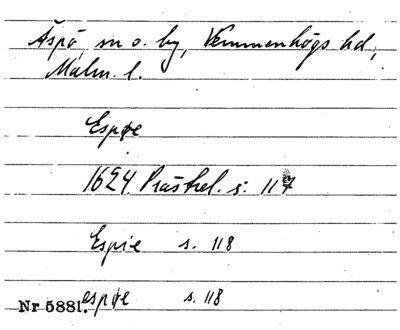 Äspö, sn o. by, Vemmenhögs hd,
Malm. l.
Espøe
1624 Präśtrel. s. 117
Espie s. 118
Nr 5881. espøe s. 118